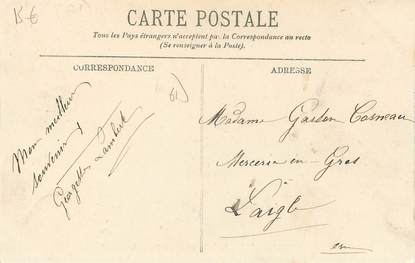 15 €
CARTE POSTALE
Tous les Pays étrangers n'acceptent pas la Correspondance au recto
(Se renseigner à la Poste)
CORRESPONDANCE
ADRESSE
61
Mon meilleur
souvenir
Georgette Lambert
Madame Gaston Cosneau
Mercerie en Gros
Laigle